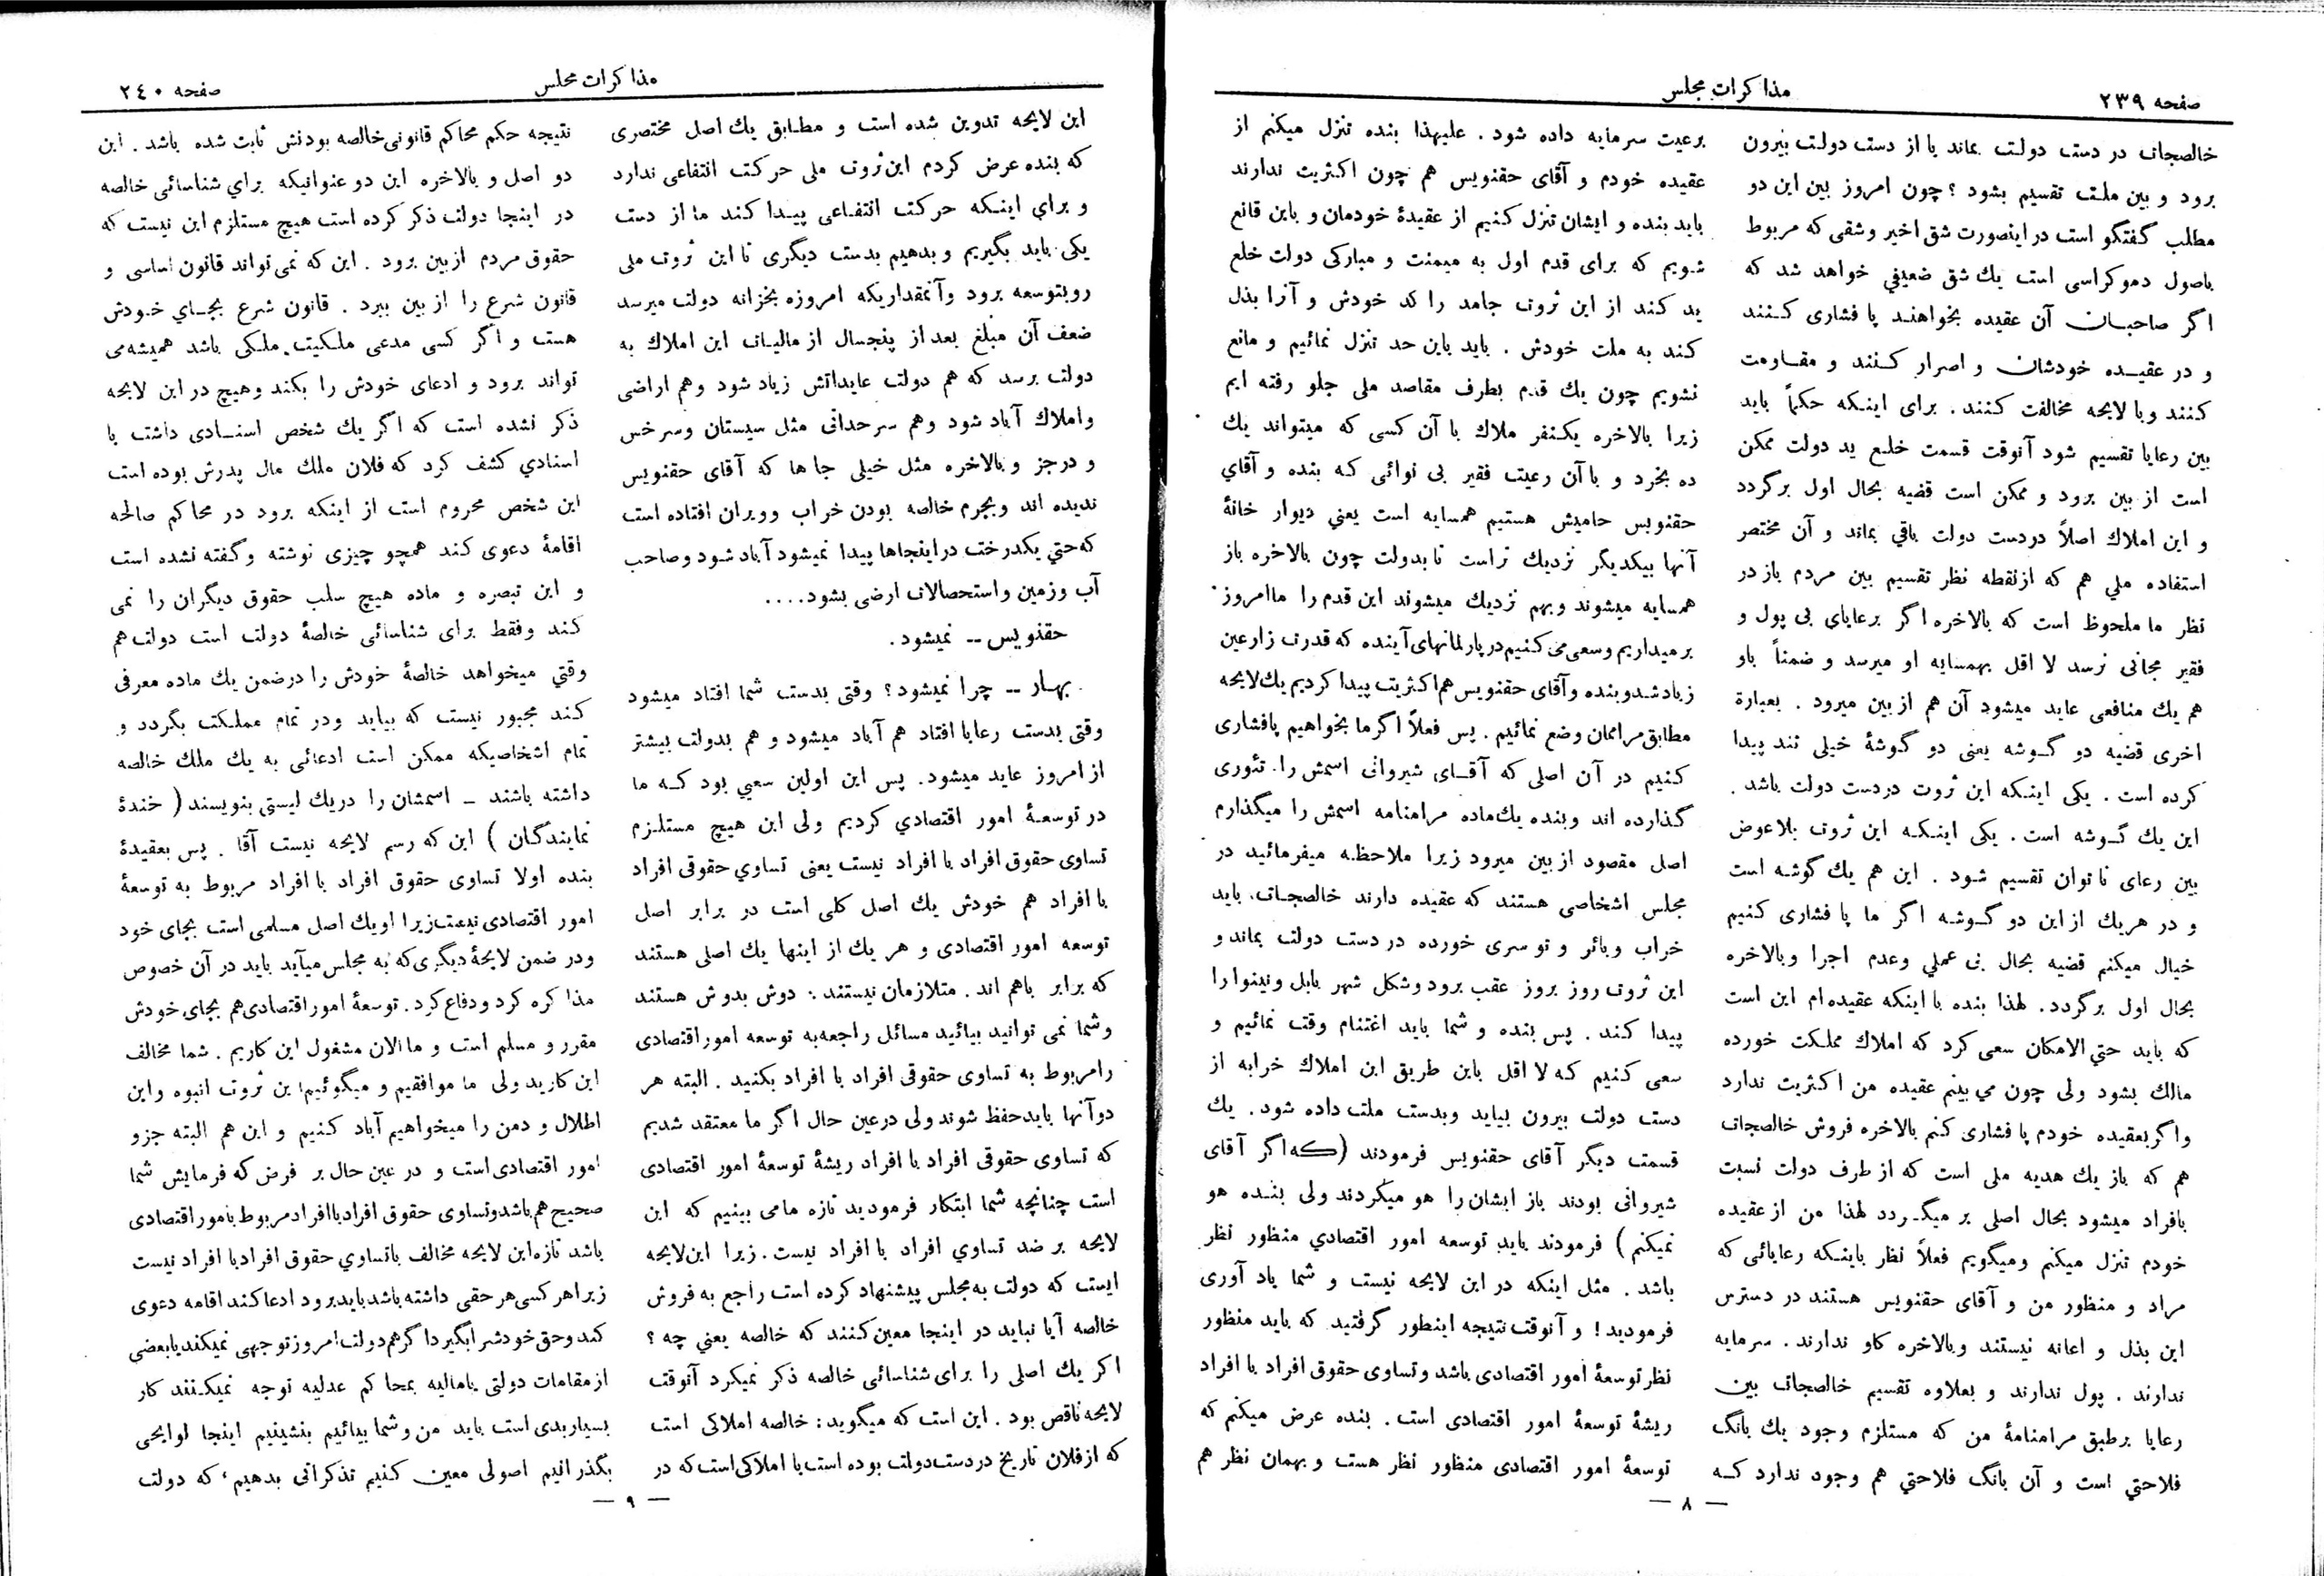 صفحه ۲۳۹
مذاکرات مجلس
خالصجات در دست دولت بماند یا از دست دولت بیرون
برود و بین ملت تقسیم بشود ؟ چون امروز بین این دو
مطلب گفتگو است در اینصورت شق اخیر و شقی که مربوط
باصول دموکراسی است یك شق ضعیفی خواهد شد که
اگر صاحبان آن عقیده بخواهند پا فشاری کنند
و در عقیده خودشان و اصرار کنند و مقاومت
کنند و با لایحه مخالفت کنند . برای اینکه حکماً باید
بین رعایا تقسیم شود آنوقت قسمت خلع ید دولت ممکن
است از بین برود و ممکن است قضیه بحال اول برگردد
و این املاك اصلاً دردست دولت باقی بماند و آن مختصر
استفاده ملي هم که ازنقطه نظر تقسیم بین مردم باز در
نظر ما ملحوظ است که بالاخره اگر برعایای بی پول و
فقیر مجانی نرسد لا اقل بهمسایه او میرسد و ضمناً باو
هم یك منافعی عاید میشود آن هم از بین میرود . بعبارة
اخری قضیه دو گوشه یعنی دو گوشهٔ خیلی تند پیدا
کرده است . یکی اینکه این ثروت دردست دولت باشد .
این یك گوشه است . یکی اینکه این ثروت بلاعوض
بین رعای نا توان تقسیم شود . این هم یك گوشه است
و در هریك از این دو گوشه اگر ما پا فشاری کنیم
خیال میکنم قضیه بحال بی عملي وعدم اجرا وبالاخره
بحال اول برگردد. لهذا بنده با اینکه عقیده ام این است
که باید حتي الامکان سعی کرد که املاك مملکت خورده
مالك بشود ولی چون می بینم عقیده من اکثریت ندارد
واگربعقیده خودم پا فشاری کنم بالاخره فروش خالصجات
هم که باز یك هدیه ملی است که از طرف دولت نسبت
بافراد میشود بحال اصلی بر میگردد لهذا من از عقیده
خودم تنزل میکنم ومیگویم فعلاً نظر باینکه رعایائی که
مراد و منظور من و آقای حقنویس هستند در دسترس
این بذل و اعانه نیستند وبالاخره کاو ندارند . سرمایه
ندارند . پول ندارند و بعلاوه تقسیم خالصجات بین
رعایا برطبق مرامنامهٔ من که مستلزم وجود یك بانگ
فلاحتي است و آن بانگ فلاحتي هم وجود ندارد که
برعیت سرمایه داده شود . علیهذا بنده تنزل میکنم از
عقیده خودم و آقای حقنویس هم چون اکثریت ندارند
باید بنده و ایشان تنزل کنیم از عقیدهٔ خودمان و باین قانع
شویم که برای قدم اول به میمنت و مبارکی دولت خلع
ید کند از این ثروت جامد را کد خودش و آنرا بذل
کند به ملت خودش . باید باین حد تنزل نمائیم و مانع
نشویم چون یك قدم بطرف مقاصد ملی جلو رفته ایم
زیرا بالاخره یکنفر ملاك با آن کسی که میتواند یك
ده بخرد و با آن رعیت فقیر بی نوائی که بنده و آقاي
حقنویس حامیش هستیم همسایه است یعني دیوار خانهٔ
آنها بیکدیگر نزدیك تراست تا بدولت چون بالاخره باز
همسایه میشوند وبهم نزدیك میشوند این قدم را ما امروز
برمیداریم وسعی می کنیم درپارلمانهای آینده که قدرت زارعین
زیاد شد و بنده و آقای حقنویس هم اکثریت پیدا کردیم یك لایحه
مطابق مراممان وضع نمائیم . پس فعلاً اگر ما بخواهیم پافشاری
کنیم در آن اصلی که آقای شیروانی اسمش را تئوری
گذارده اند و بنده یك ماده مرامنامه اسمش را میگذارم
اصل مقصود از بین میرود زیرا ملاحظه میفرمائید در
مجلس اشخاصی هستند که عقیده دارند خالصجات باید
خراب و بائر و تو سری خورده در دست دولت بماند و
این ثروت روز بروز عقب برود وشکل شهر بابل ونینوا را
پیدا کند . پس بنده و شما باید اغتنام وقت نمائیم و
سعی کنیم که لا اقل باین طریق این املاك خرابه از
دست دولت بیرون بیاید وبدست ملت داده شود . یك
قسمت دیگر آقای حقنویس فرمودند (که اگر آقای
شیروانی بودند باز ایشان را هو میکردند ولی بنده هو
نمیکنم ) فرمودند باید توسعه امور اقتصادي منظور نظر
باشد . مثل اینکه در این لایحه نیست و شما یاد آوری
فرمودید ! و آنوقت نتیجه اینطور گرفتید که باید منظور
نظر توسعهٔ امور اقتصادی باشد و تساوی حقوق افراد با افراد
ریشهٔ توسعهٔ امور اقتصادی است . بنده عرض میکنم که
توسعهٔ امور اقتصادی منظور نظر هست و بهمان نظر هم
— ۸ —
مذاکرات مجلس
صفحه ۲٤۰
این لایحه تدوین شده است و مطابق یك اصل مختصری
که بنده عرض کردم این ثروت ملی حرکت انتفاعی ندارد
و براي اینکه حرکت انتفاعی پیدا کند ما از دست
یکی باید بگیریم و بدهیم بدست دیگری تا این ثروت ملی
روبتوسعه برود وآنمقداریکه امروزه بخزانه دولت میرسد
ضعف آن مبلغ بعد از پنجسال از مالیات این املاك به
دولت برسد که هم دولت عایداتش زیاد شود وهم اراضی
واملاك آباد شود وهم سرحداتی مثل سیستان وسرخس
و درجز و بالاخره مثل خیلی جا ها که آقای حقنویس
ندیده اند وبجرم خالصه بودن خراب وویران افتاده است
که حتي یکدرخت دراینجاها پیدا نمیشود آباد شود وصاحب
آب وزمین واستحصالات ارضی بشود....
حقنویس -- نمیشود .
بهار -- چرا نمیشود؟ وقتی بدست شما افتاد میشود
وقتی بدست رعایا افتاد هم آباد میشود و هم بدولت بیشتر
از امروز عاید میشود. پس این اولین سعیي بود که ما
در توسعهٔ امور اقتصادي کردیم ولی این هیچ مستلزم
تساوی حقوق افراد با افراد نیست یعنی تساوي حقوقی افراد
با افراد هم خودش یك اصل کلی است در برابر اصل
توسعه امور اقتصادی و هر یك از اینها یك اصلی هستند
که برابر باهم اند . متلازمان نیستند : دوش بدوش هستند
وشما نمی توانید بیائید مسائل راجعه به توسعه امور اقتصادی
رامربوط به تساوی حقوقی افراد با افراد بکنید . البته هر
دو آنها باید حفظ شوند ولی درعین حال اگر ما معتقد شدیم
که تساوی حقوقی افراد با افراد ریشهٔ توسعهٔ امور اقتصادی
است چنانچه شما ابتکار فرمودید تازه مامی بینیم که این
لایحه بر ضد تساوي افراد با افراد نیست . زیرا این لایحه
ایست که دولت به مجلس پیشنهاد کرده است راجع به فروش
خالصه آیا نباید در اینجا معین کنند که خالصه یعني چه ؟
اگر یك اصلی را برای شناسائی خالصه ذکر نمیکرد آنوقت
لایحه ناقص بود . این است که میگوید : خالصه املاکی است
که از فلان تاریخ در دست دولت بوده است یا املاکی است که در
نتیجه حکم محاکم قانونی خالصه بودنش ثابت شده باشد . این
دو اصل و بالاخره این دو عنوانیکه براي شناسائی خالصه
در اینجا دولت ذکر کرده است هیچ مستلزم این نیست که
حقوق مردم از بین برود . این که نمی تواند قانون اساسی و
قانون شرع را از بین ببرد . قانون شرع بجاي خودش
هست و اگر کسی مدعی ملکیت ملکی باشد همیشه می
تواند برود و ادعای خودش را بکند وهیچ در این لایحه
ذکر نشده است که اگر یك شخص اسنادی داشت یا
اسنادي کشف کرد که فلان ملك مال پدرش بوده است
این شخص محروم است از اینکه برود در محاکم صالحه
اقامهٔ دعوی کند همچو چیزی نوشته و گفته نشده است
و این تبصره و ماده هیچ سلب حقوق دیگران را نمی
کند وفقط برای شناسائی خالصهٔ دولت است دولت هم
وقتي میخواهد خالصهٔ خودش را درضمن یك ماده معرفی
کند مجبور نیست که بیاید ودر تمام مملکت بگردد و
تمام اشخاصیکه ممکن است ادعائی به یك ملك خالصه
داشته باشند ـ اسمشان را دریك لیستی بنویسند ( خندهٔ
نمایندگان ) این که رسم لایحه نیست آقا . پس بعقیدهٔ
بنده اولا تساوی حقوق افراد با افراد مربوط به توسعهٔ
امور اقتصادی نیست زیرا او یك اصل مسلمی است بجای خود
ودر ضمن لایحهٔ دیگری که به مجلس میآید باید در آن خصوص
مذاکره کرد و دفاع کرد . توسعهٔ امور اقتصادی هم بجای خودش
مقرر و مسلم است و ما الان مشغول این کاریم . شما مخالف
این کارید ولی ما موافقیم و میگوئیم این ثروت انبوه واین
اطلال و دمن را میخواهیم آباد کنیم و این هم البته جزو
امور اقتصادی است و در عین حال بر فرض که فرمایش شما
صحیح هم باشد وتساوی حقوق افراد با افراد مربوط بامور اقتصادی
باشد تازه این لایحه مخالف با تساوي حقوق افراد با افراد نیست
زیرا هر کسی هر حقی داشته باشد باید برود ادعا کند اقامه دعوی
کند و حق خودش را بگیرد اگر هم دولت امروز توجهی نمیکند یا بعضی
از مقامات دولتی یا مالیه بمحاکم عدلیه توجه نمیکنند کار
بسیار بدی است باید من و شما بیائیم بنشینیم اینجا لوایحی
بگذرانیم اصولی معین کنیم تذکراتی بدهیم که دولت
— ۹ —